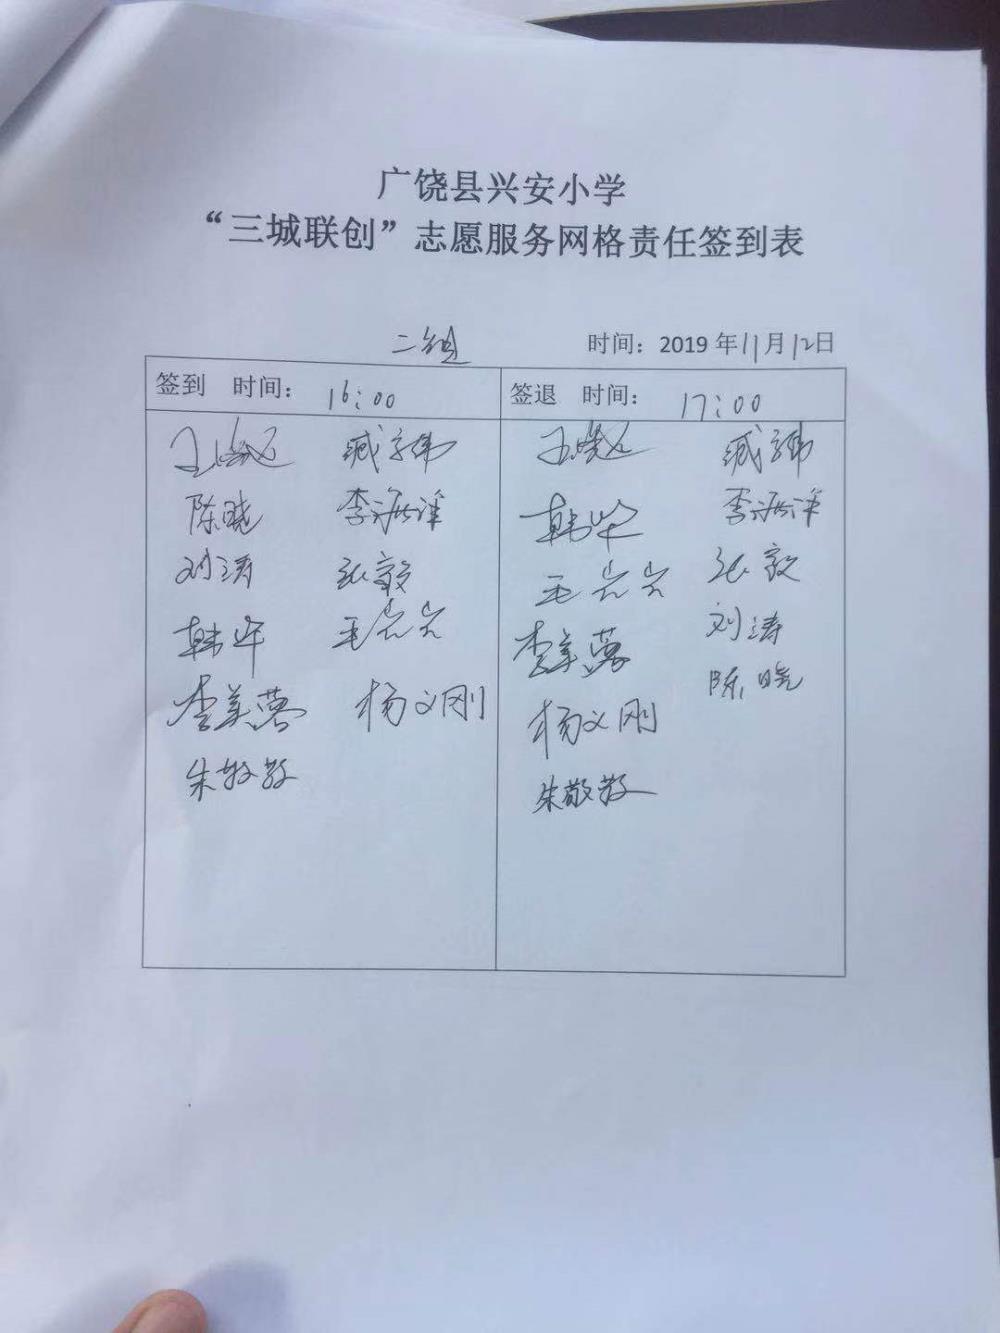 广饶县兴安小学
“三城联创”志愿服务网格责任签到表
二组 时间：2019年11月12日
签到 时间：16:00 签退 时间：17:00
陈晓 李海洋
刘涛 张毅
韩华 毛岩岩
李美蓉 杨文刚
朱敬敬
韩华 李海洋
毛岩岩 张毅
李美蓉 刘涛
杨文刚 陈晓
朱敬敬